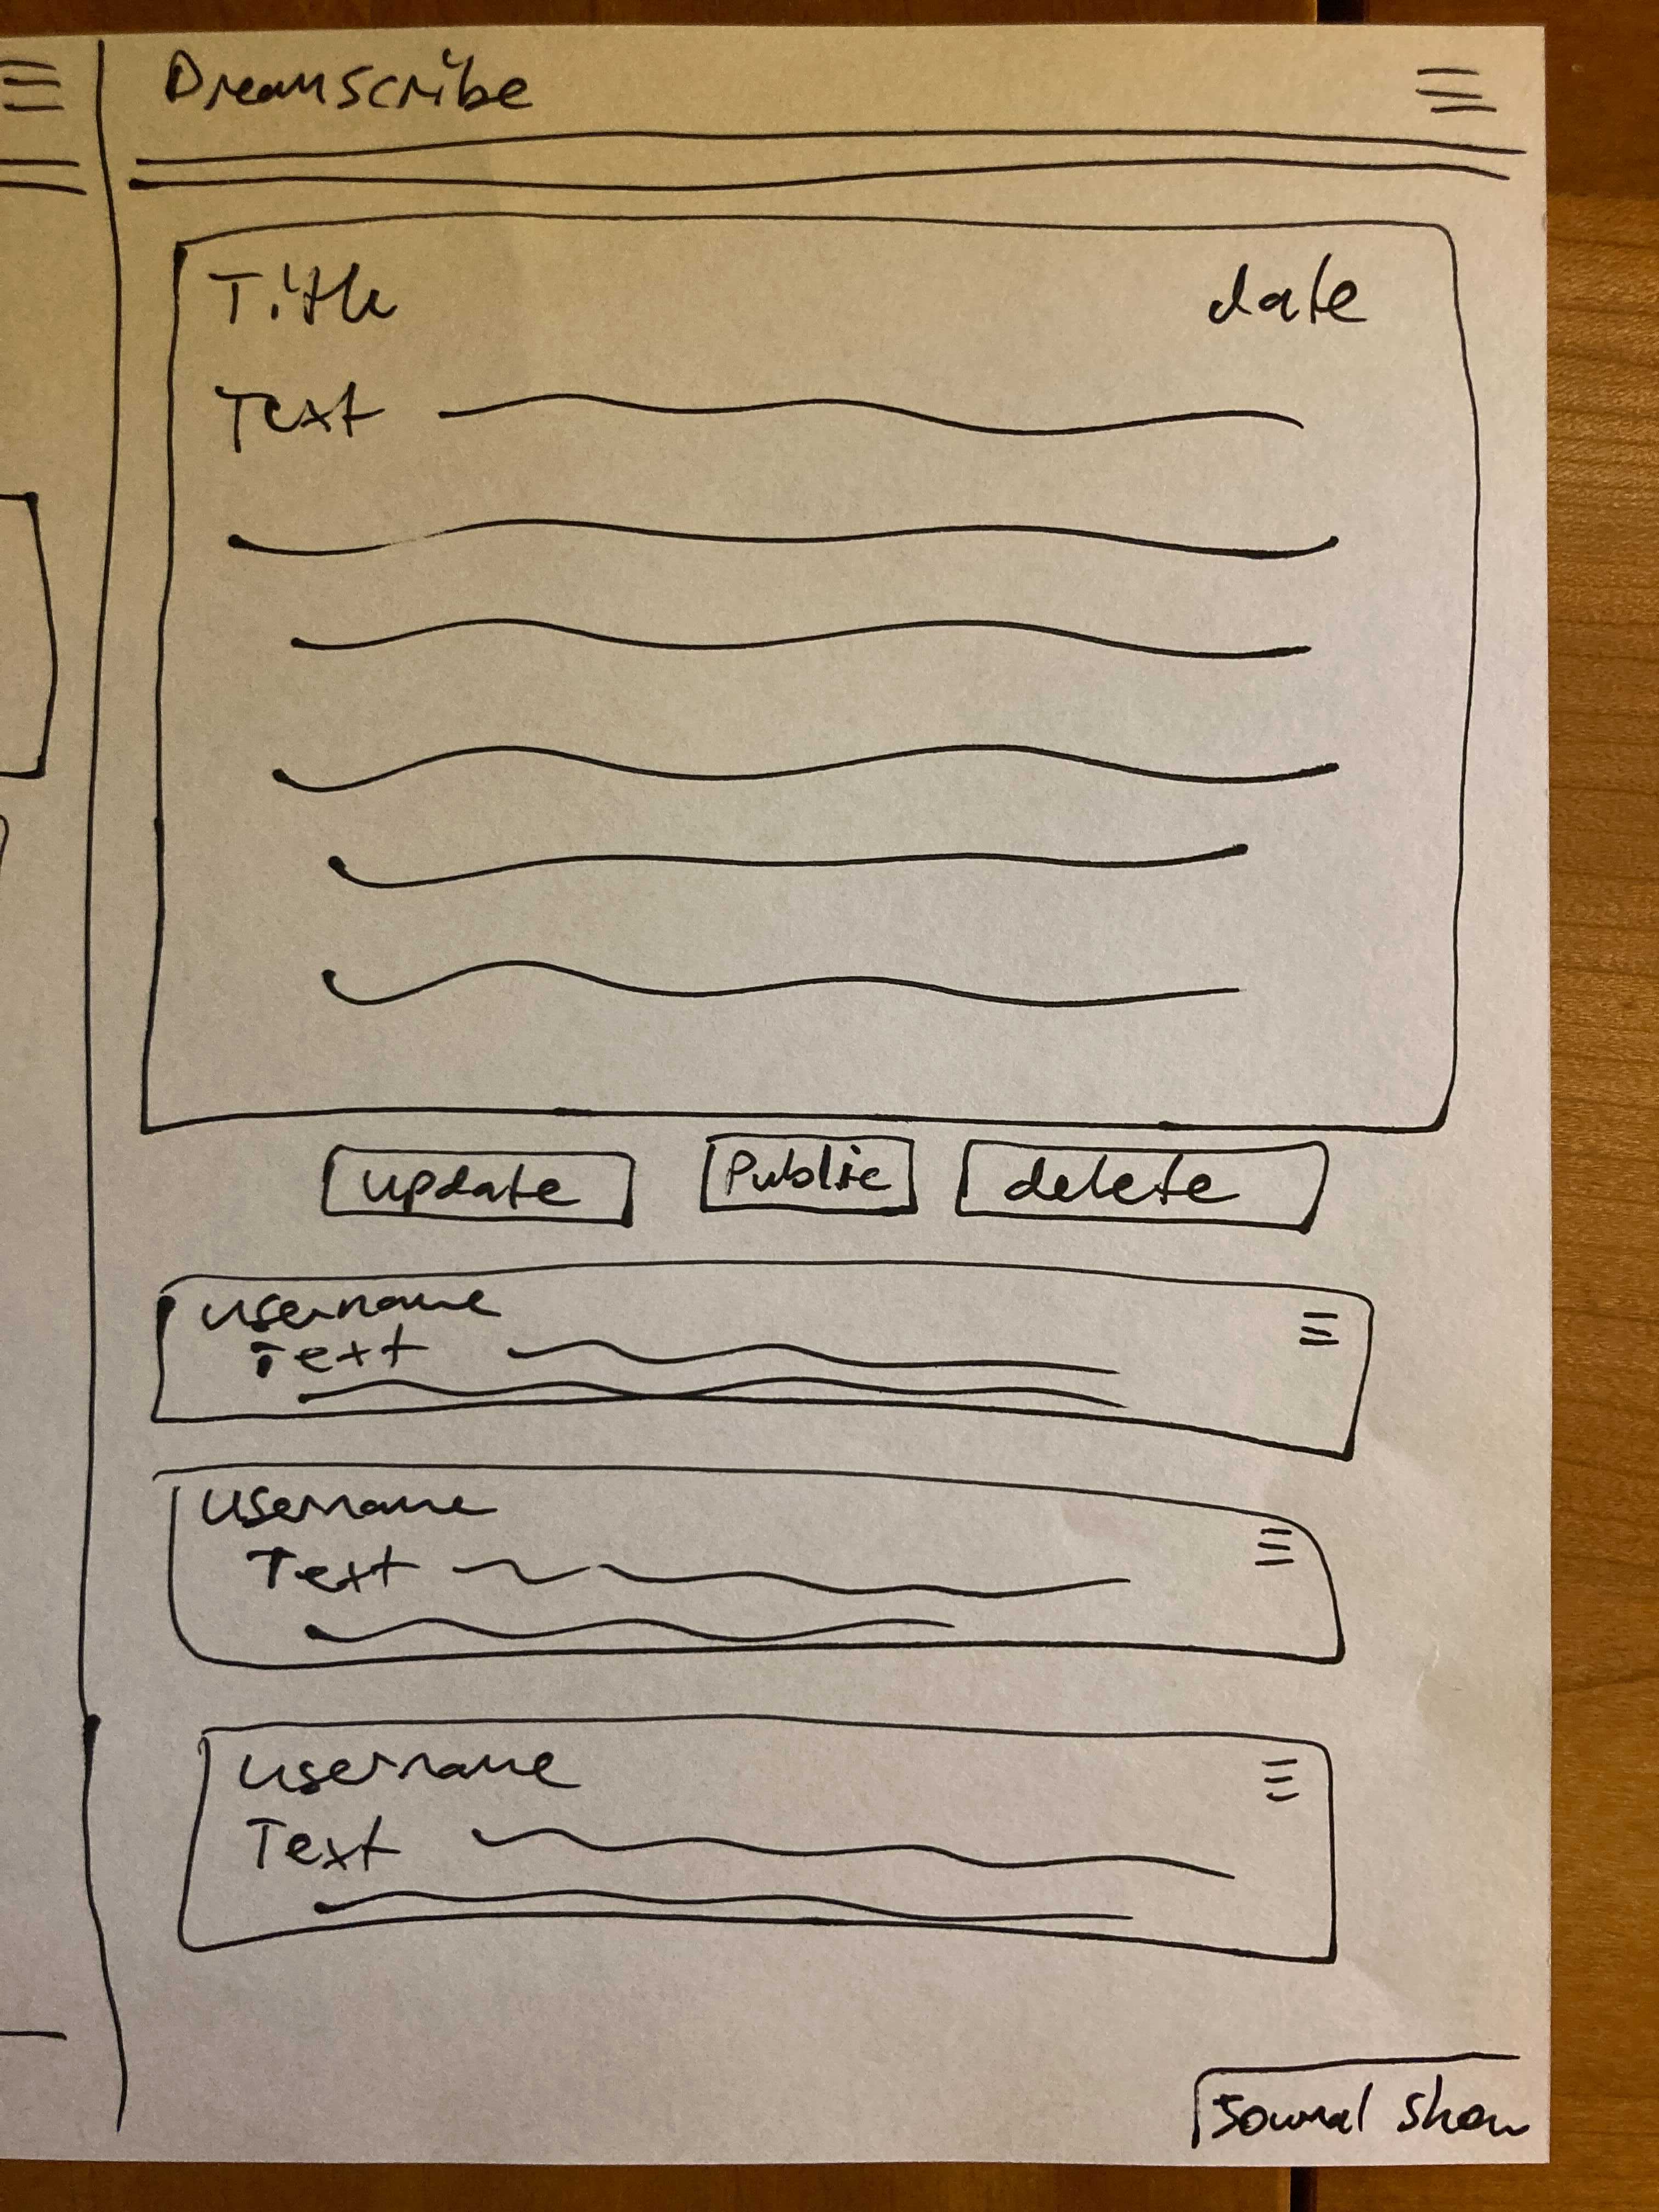 Dreamscribe
Title date
Text
update Public delete
username
Text
username
Text
username
Text
Journal Show